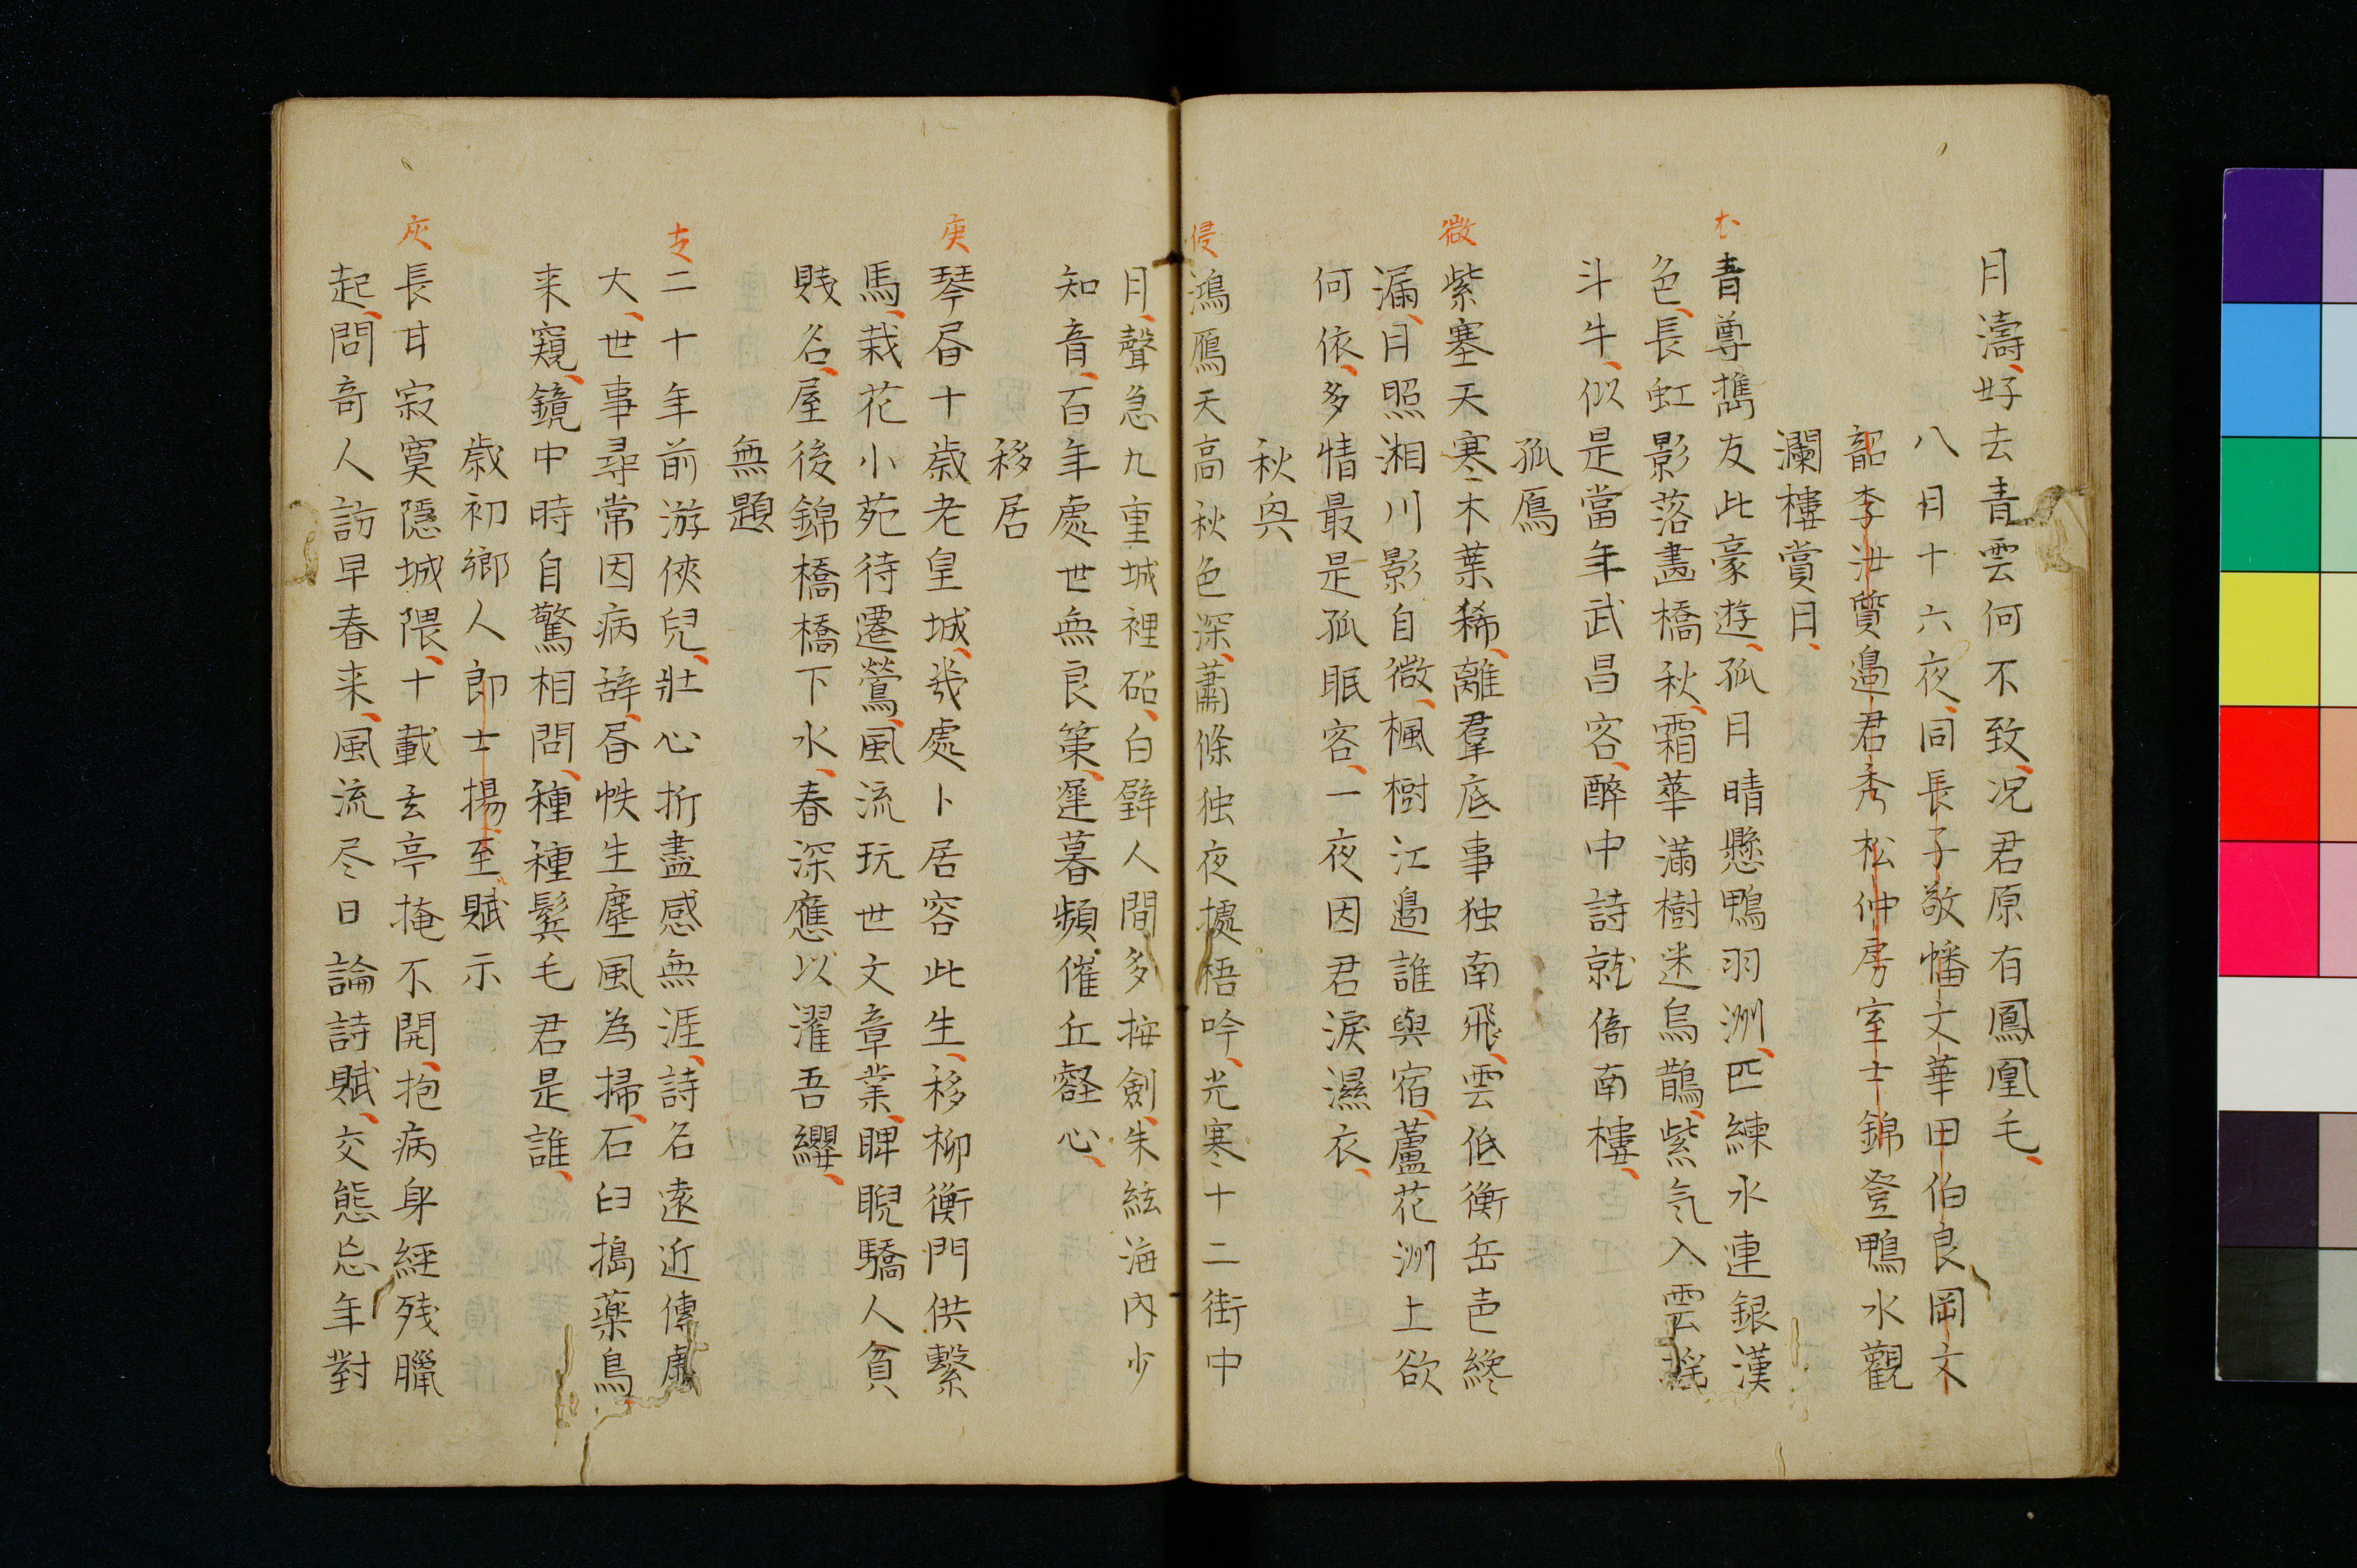 月濤好去青雲何不致况君原有鳳凰毛
八月十六夜同長子敬幡文華田伯良岡文
韶李沚質邉君秀松仲房室士錦登鴨水觀
瀾樓賞月
尤
青尊携友此豪遊孤月晴懸鴨羽洲匹練水連銀漢
色長虹影落畵橋秋霜華滿樹迷烏鵲紫气入雲揺
斗牛似是當年武昌客醉中詩就倚南樓
孤鴈
微
紫塞天寒木葉稀離羣底事独南飛雲低衡岳声纔
漏月照湘川影自微楓樹江邉誰與宿蘆花洲上欲
何依多情最是孤眠客一夜因君淚濕衣
秋興
侵
鴻鴈天高秋色深蕭條独夜據梧吟光寒十二街中
月聲急九重城裡砧白璧人間多按劍朱絃海内少
知音百年處世無良策遲暮頻催丘壑心
移居
庚
琴昏十歳老皇城幾處卜居容此生移柳衡門供繫
馬栽花小苑待遷鶯風流玩世文章業睥睨驕人貧
賎名屋後錦橋橋下水春深應以濯吾纓
無題
支
二十年前游俠兒壯心折盡感無涯詩名遠近傳處
大世事尋常因病辞昏帙生塵風為掃石臼搗薬鳥
来窺鏡中時自驚相問種種髮毛君是誰
歳初郷人郎士揚至賦示
灰
長甘寂寞隠城隈十載玄亭掩不開抱病身經残臘
起問奇人訪早春来風流尽日論詩賦交態忘年對